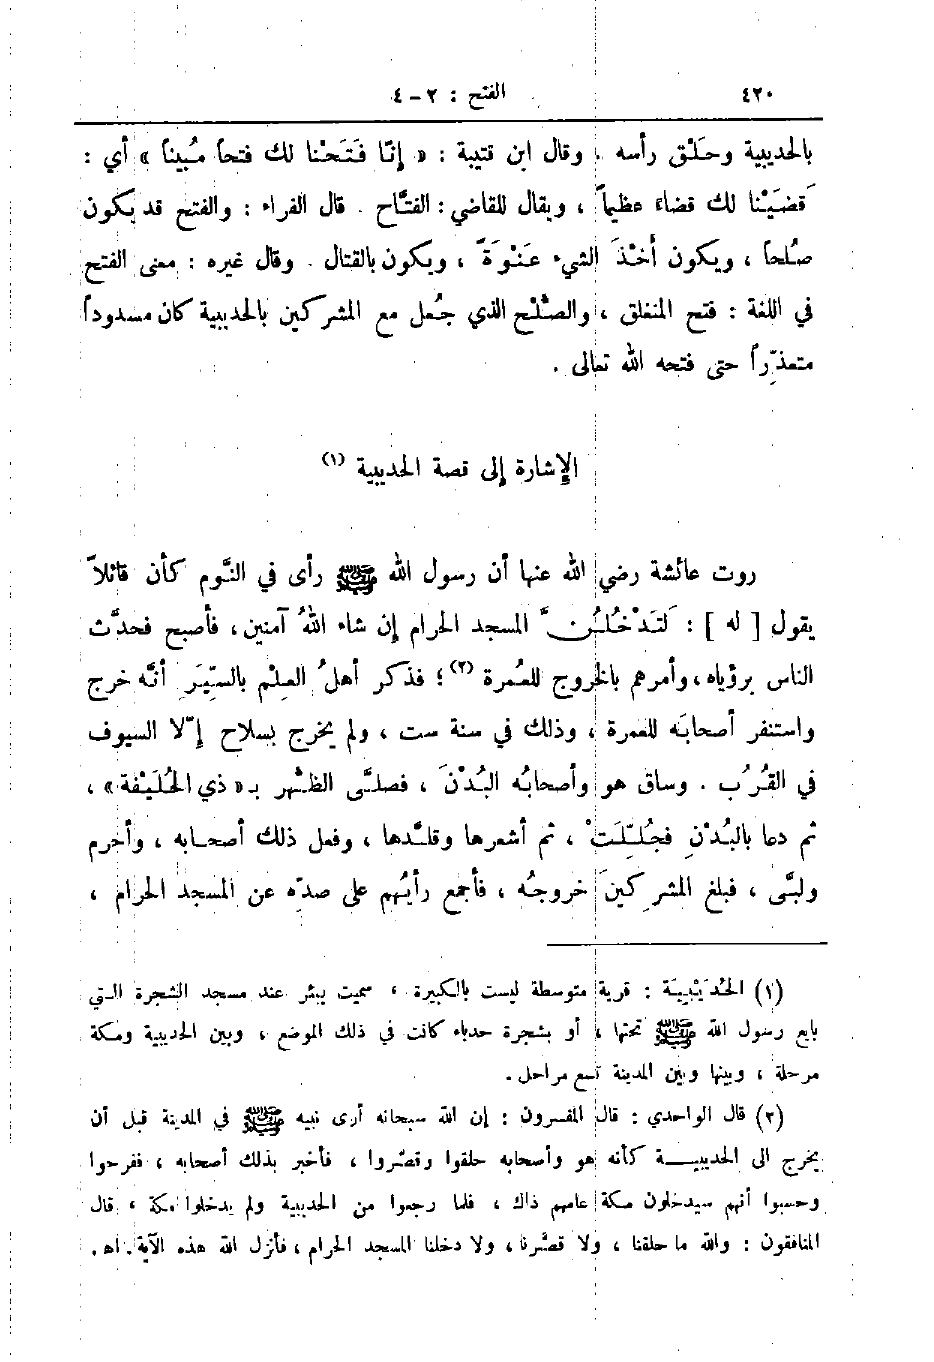 ٤٢٠
الفتح : ٢ – ٤
بالحديبية وحَلْق رأسه . وقال ابن قتيبة : « إنّا فَتَحْنا لك فتحاً مُبيناً » أي :
قضَيْنا لك قضاء عظيماً ، ويقال للقاضي : الفتّاح . قال الفراء : والفتح قد يكون
صُلحاً ، ويكون أخْذَ الشيء عَنْوَةً ، ويكون بالقتال . وقال غيره : معنى الفتح
في اللغة : فتح المنغلق ، والصُّلْح الذي جُعل مع المشركين بالحديبية كان مسدوداً
متعذِّراً حتى فتحه الله تعالى .
الإشارة إلى قصة الحديبية (١)
روت عائشة رضي الله عنها أن رسول الله ﷺ رأى في النَّوم كأن قائلاً
يقول [ له ] : لَتَدْخُلُنَّ المسجد الحرام إن شاء اللهُ آمنين ، فأصبح فحدَّث
الناس برؤياه ، وأمرهم بالخروج للعُمرة (٢) ؛ فذكر أهلُ العِلْم بالسِّيَرِ أنَّه خرج
واستنفر أصحابَه للعمرة ، وذلك في سنة ست ، ولم يخرج بسلاح إلّا السيوف
في القُرُب . وساق هو وأصحابُه البُدْنَ ، فصلَّى الظُّهر بـ « ذي الحُلَيْفة » ،
ثم دعا بالبُدْنِ فجُلِّلَتْ ، ثم أشعرها وقلَّدها ، وفعل ذلك أصحابه ، وأحرم
ولبَّى ، فبلغ المشركينَ خروجُه ، فأجمع رأيُهم على صدِّه عن المسجد الحرام ،
(١) الحُدَيْبِيَة : قرية متوسطة ليست بالكبيرة ، سميت ببئر عند مسجد الشجرة التي
بايع رسول الله ﷺ تحتها ، أو بشجرة حدباء كانت في ذلك الموضع ، وبين الحديبية ومكة
مرحلة ، وبينها وبين المدينة تسع مراحل .
(٢) قال الواحدي : قال المفسرون : إن الله سبحانه أرى نبيه ﷺ في المدينة قبل أن
يخرج الى الحديبيــة كأنه هو وأصحابه حلقوا وقصّروا ، فأخبر بذلك أصحابه ، ففرحوا
وحسبوا أنهم سيدخلون مكة عامهم ذاك ، فلما رجعوا من الحديبية ولم يدخلوا مكة ، قال
المنافقون : والله ما حلقنا ، ولا قصّرنا ، ولا دخلنا المسجد الحرام ، فأنزل الله هذه الآية . اه .